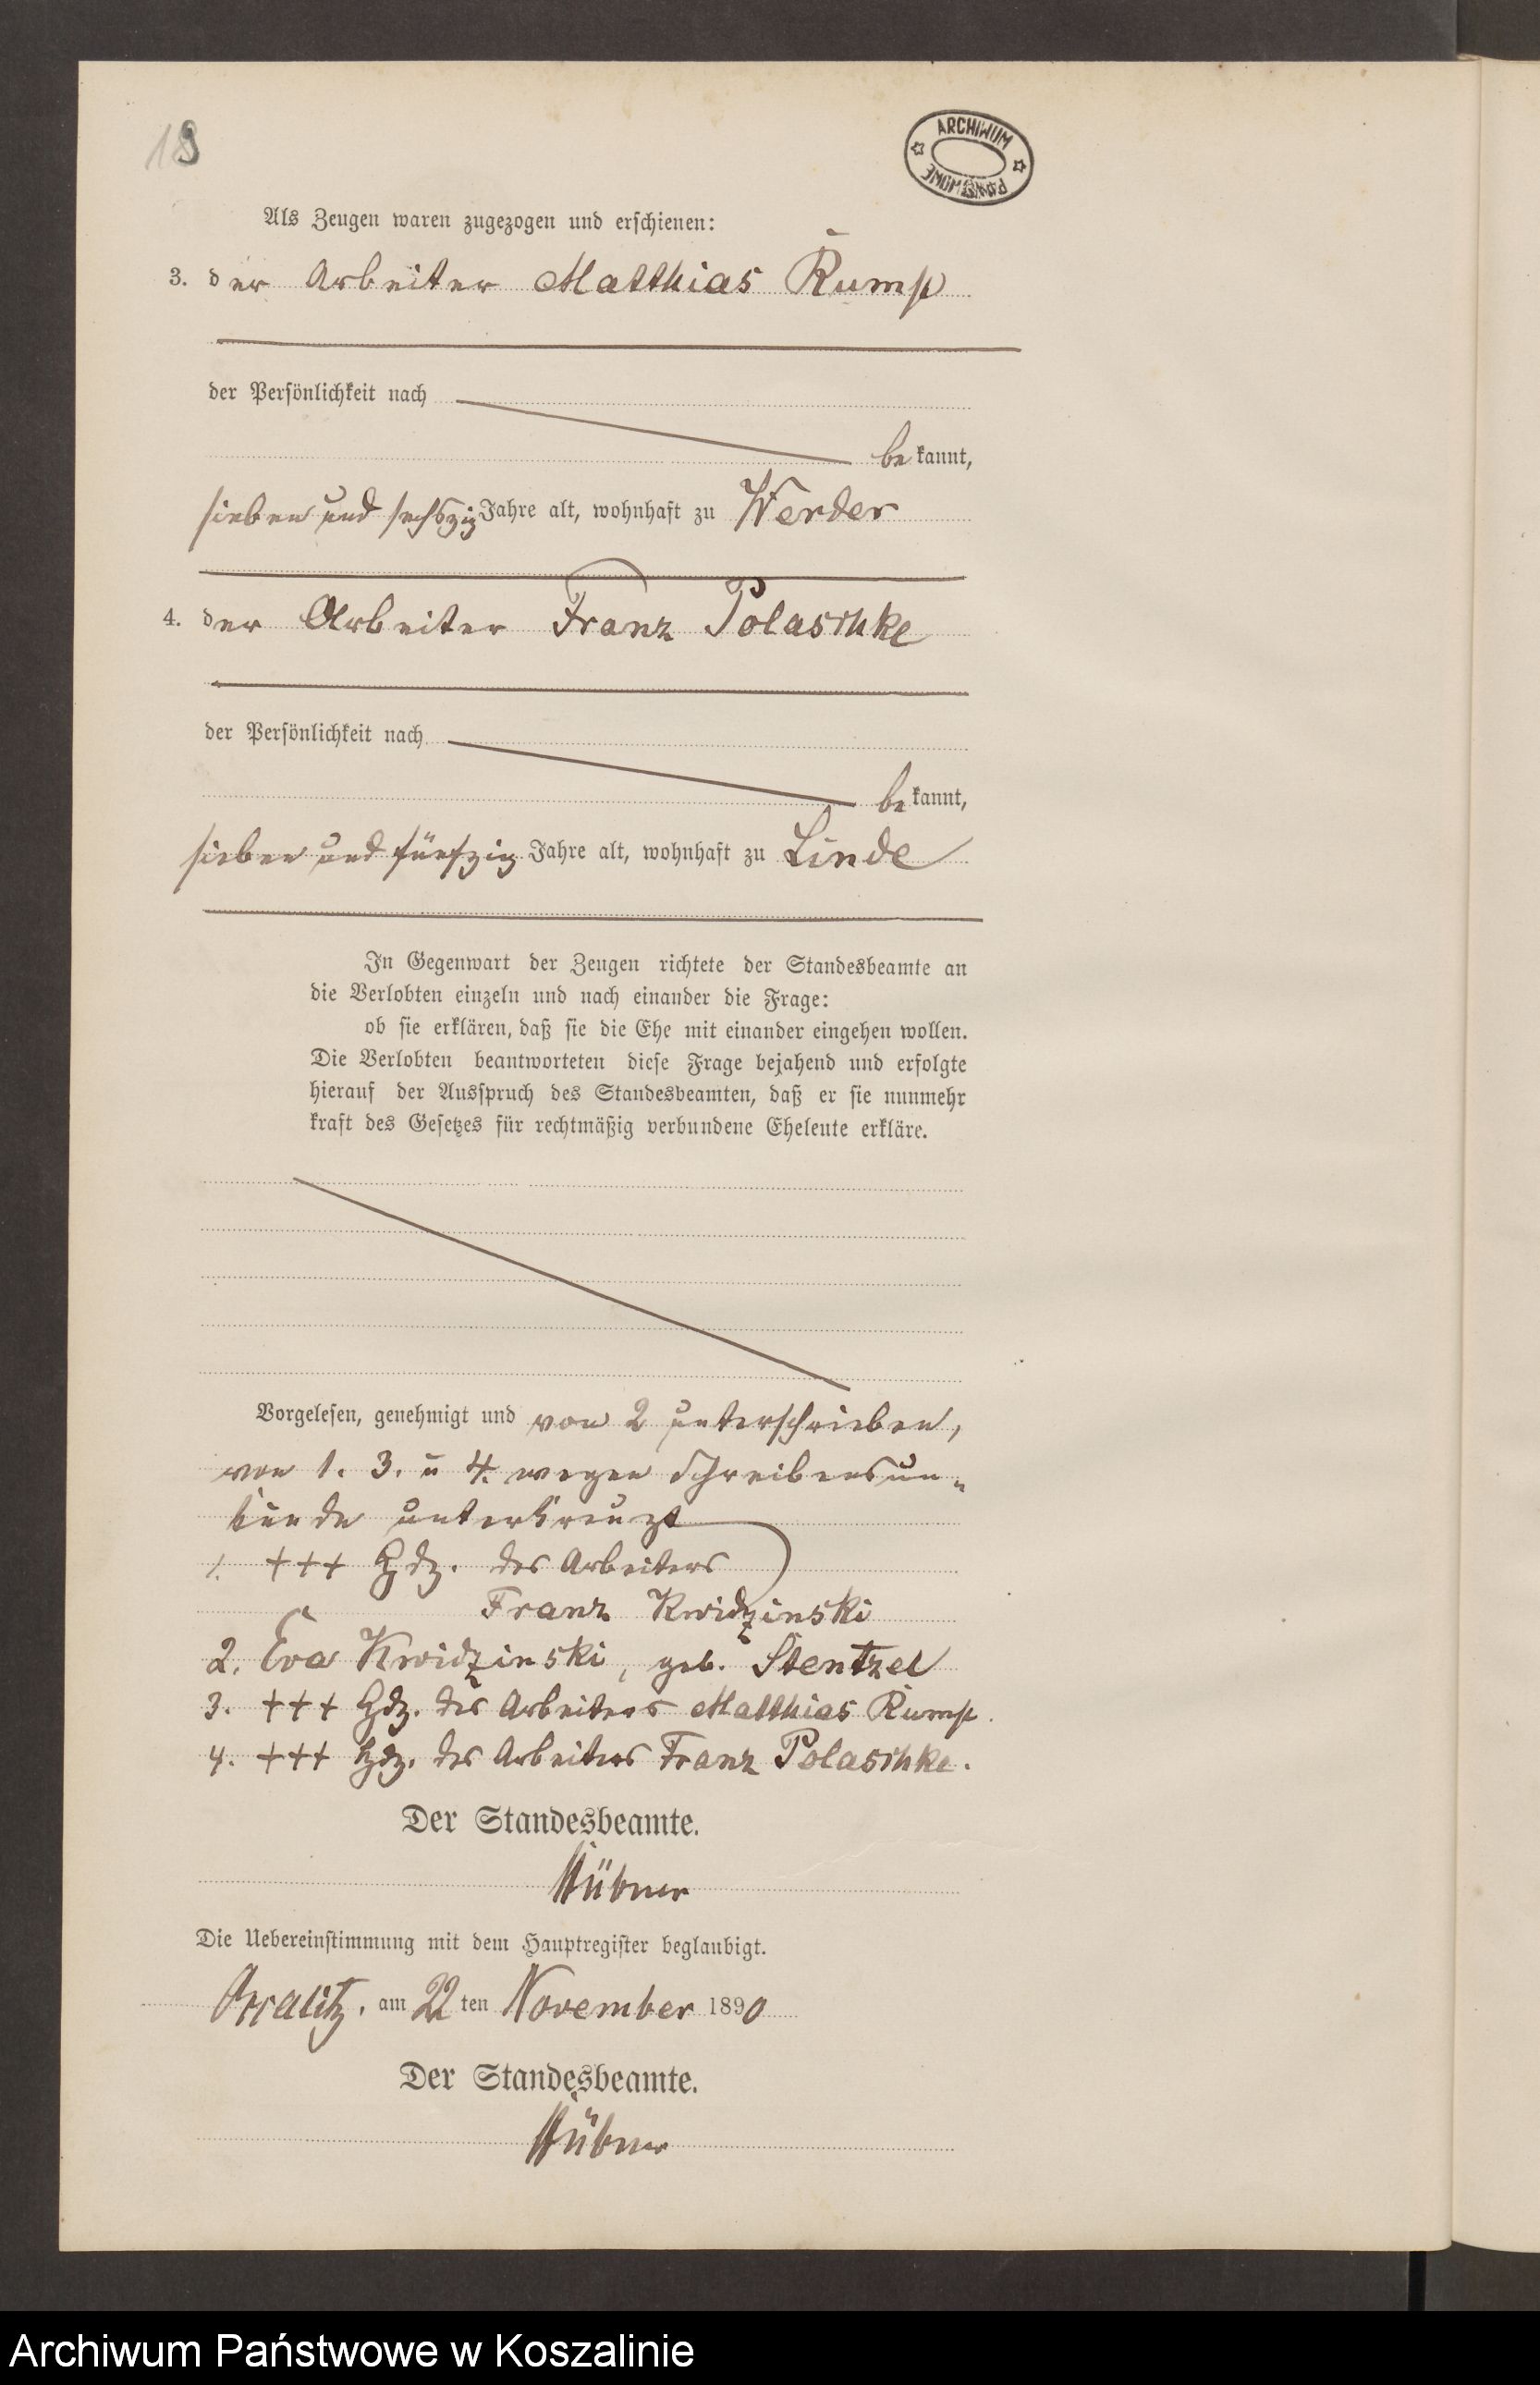 19
ARCHIWUM
PAŃSTWOWE
Als Zeugen waren zugezogen und erschienen:
3. der Arbeiter Matthias Rump
der Persönlichkeit nach
bekannt,
sieben und sechszig Jahre alt, wohnhaft zu Werder
4. der Arbeiter Franz Polaschke
der Persönlichkeit nach
bekannt,
sieben und fünfzig Jahre alt, wohnhaft zu Linde
In Gegenwart der Zeugen richtete der Standesbeamte an
die Verlobten einzeln und nach einander die Frage:
ob sie erklären, daß sie die Ehe mit einander eingehen wollen.
Die Verlobten beantworteten diese Frage bejahend und erfolgte
hierauf der Ausspruch des Standesbeamten, daß er sie nunmehr
kraft des Gesetzes für rechtmäßig verbundene Eheleute erkläre.
Vorgelesen, genehmigt und von 2 unterschrieben,
von 1. 3. u 4. wegen Schreibensun-
kunde unterkreuzt
1. +++ Hdz. des Arbeiters
Franz Kwidzinski
2. Eva Kwidzinski, geb. Stentzel
3. +++ Hdz. des Arbeiters Matthias Rump.
4. +++ Hdz. des Arbeiters Franz Polaschke.
Der Standesbeamte.
Hübner
Die Uebereinstimmung mit dem Hauptregister beglaubigt.
am 22ten November 1890
Der Standesbeamte.
Hübner
Archiwum Państwowe w Koszalinie